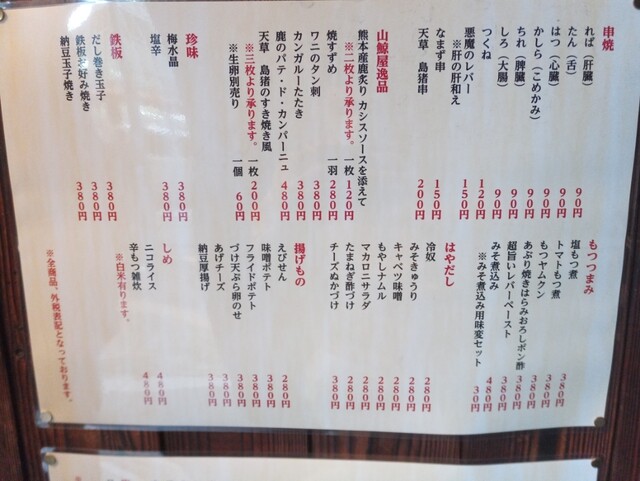 串焼
れば（肝臓） 90円
たん（舌） 90円
はつ（心臓） 90円
かしら（こめかみ） 90円
ちれ（脾臓） 90円
しろ（大腸） 90円
つくね 120円
悪魔のレバー 150円
※肝の肝和え
なまず串 150円
天草 島猪串 200円
山鯨屋逸品
熊本産鹿炙り カシスソースを添えて
※二枚より承ります。 一枚 120円
焼すずめ 一羽 280円
ワニのタン刺 380円
カンガルーたたき 380円
鹿のパテ・ド・カンパーニュ 480円
天草 島猪のすき焼き風
※三枚より承ります。 一枚 200円
※生卵別売り 一個 60円
珍味
梅水晶 380円
塩辛 380円
鉄板
だし巻き玉子 380円
鉄板お好み焼き 380円
納豆玉子焼き 380円
もつつまみ
塩もつ煮 380円
トマトもつ煮 380円
もつヤムクン 380円
あぶり焼きはらみおろしポン酢 380円
超旨いレバーペースト 380円
みそ煮込み 480円
※みそ煮込み用味変セット 30円
はやだし
冷奴 280円
みそきゅうり 280円
キャベツ味噌 280円
もやしナムル 280円
マカロニサラダ 280円
たまねぎ酢づけ 280円
チーズぬかづけ 380円
揚げもの
えびせん 280円
味噌ポテト 380円
フライドポテト 380円
づけ天ぷら卵のせ 380円
あげチーズ 380円
納豆厚揚げ 380円
しめ
ニコライス 480円
辛もつ雑炊 480円
※白米有ります。
※全商品、外税表記となっております。